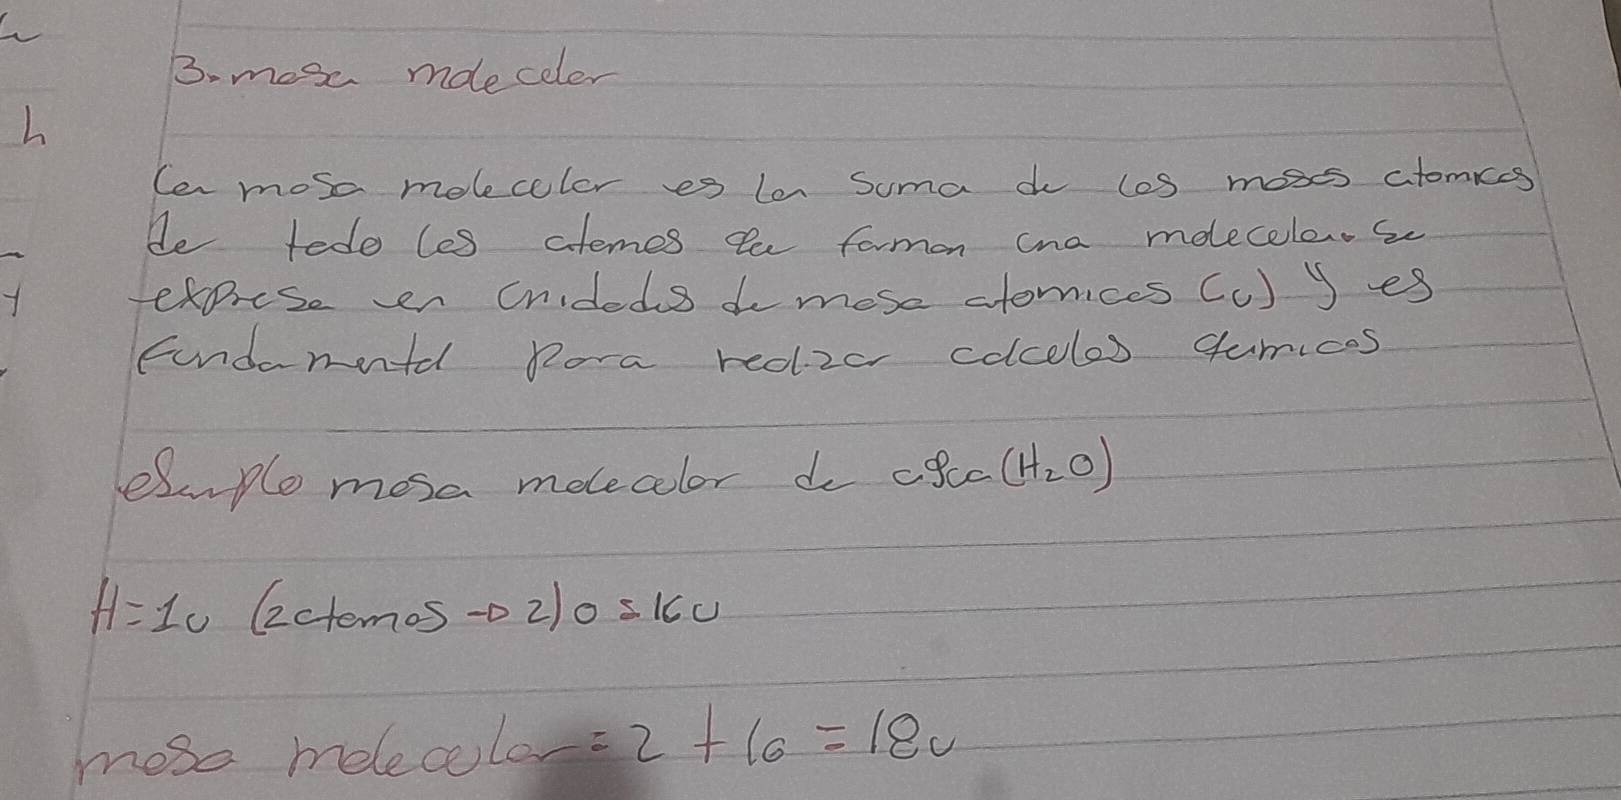 3. masa molecular
La masa molecular es la suma de las masas atomicas
de todo los atomos que forman una molecula. Se
expresa en unidades de masa atomicas (u) y es
fundamental para realizar calculos quimicos
ejemplo masa molecular de agua (H₂O)
H = 1u (2 atomos → 2) O = 16 u
masa molecular = 2 + 16 = 18u